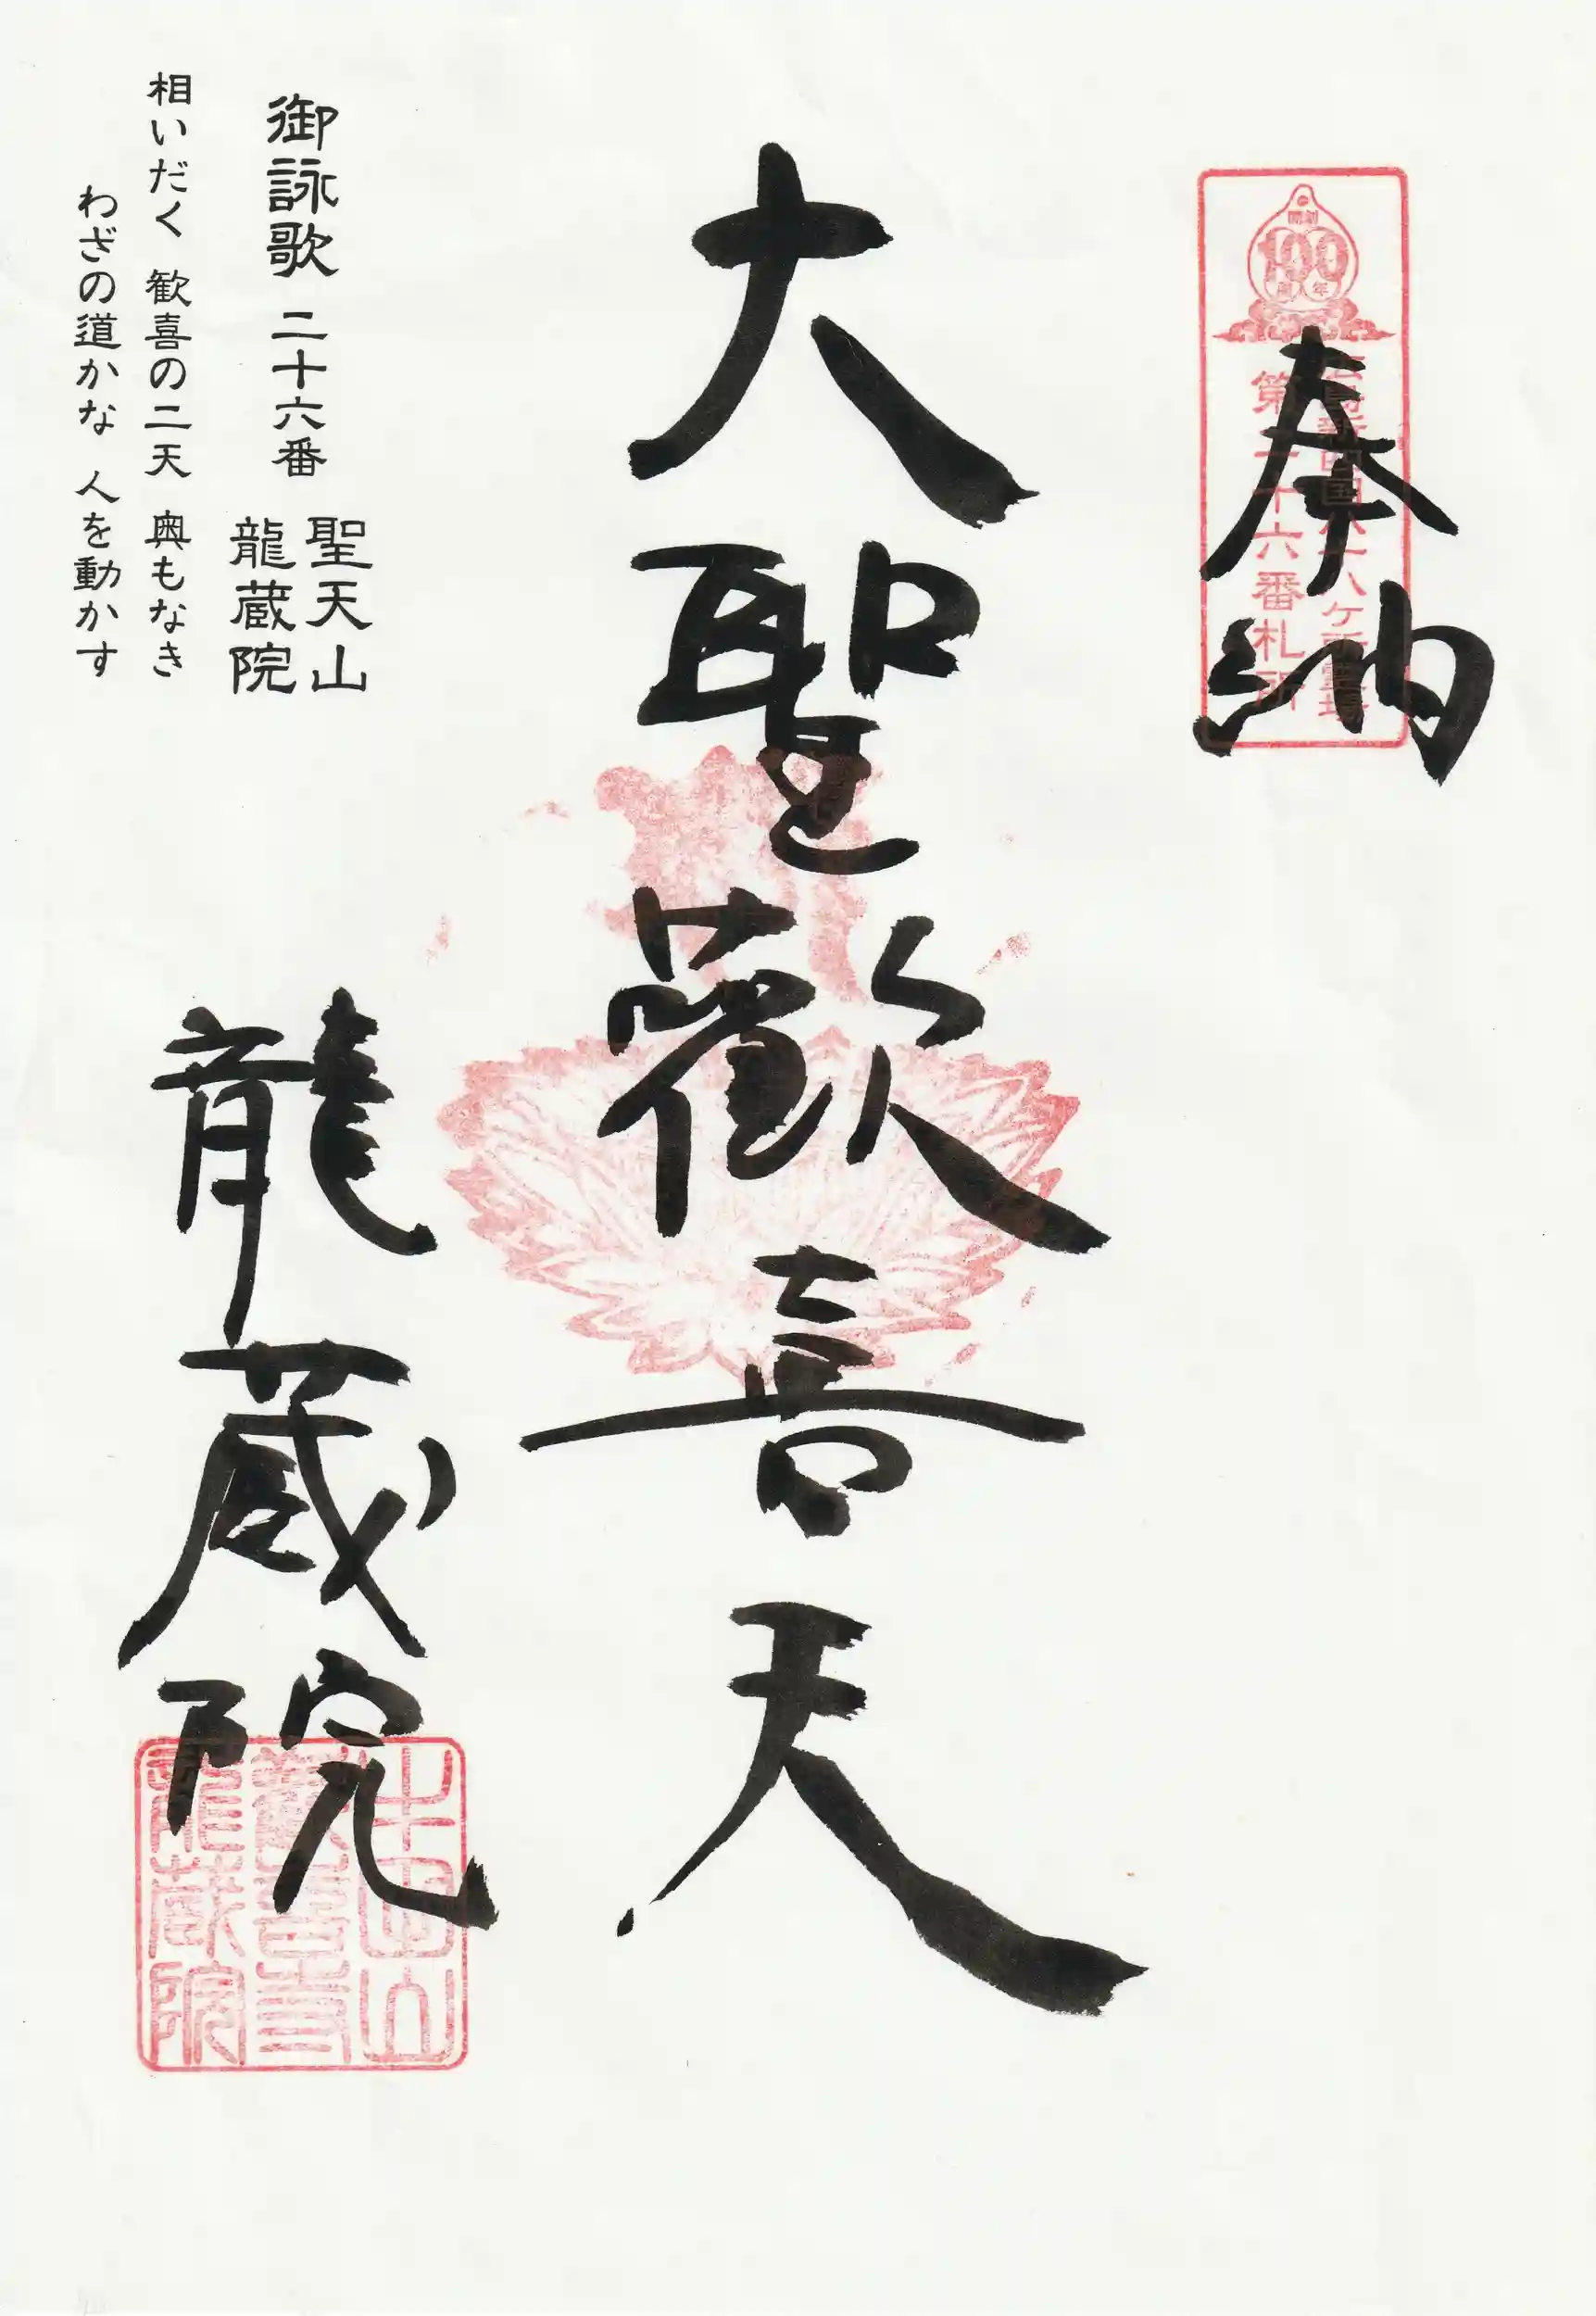 奉納
開創
100
周年
広島新四国八十八ケ所霊場
第二十六番札所
大聖歓喜天
御詠歌 二十六番 聖天山
龍蔵院
相いだく 歓喜の二天 奥もなき
わざの道かな 人を動かす
龍蔵院
歓喜寺
龍蔵院